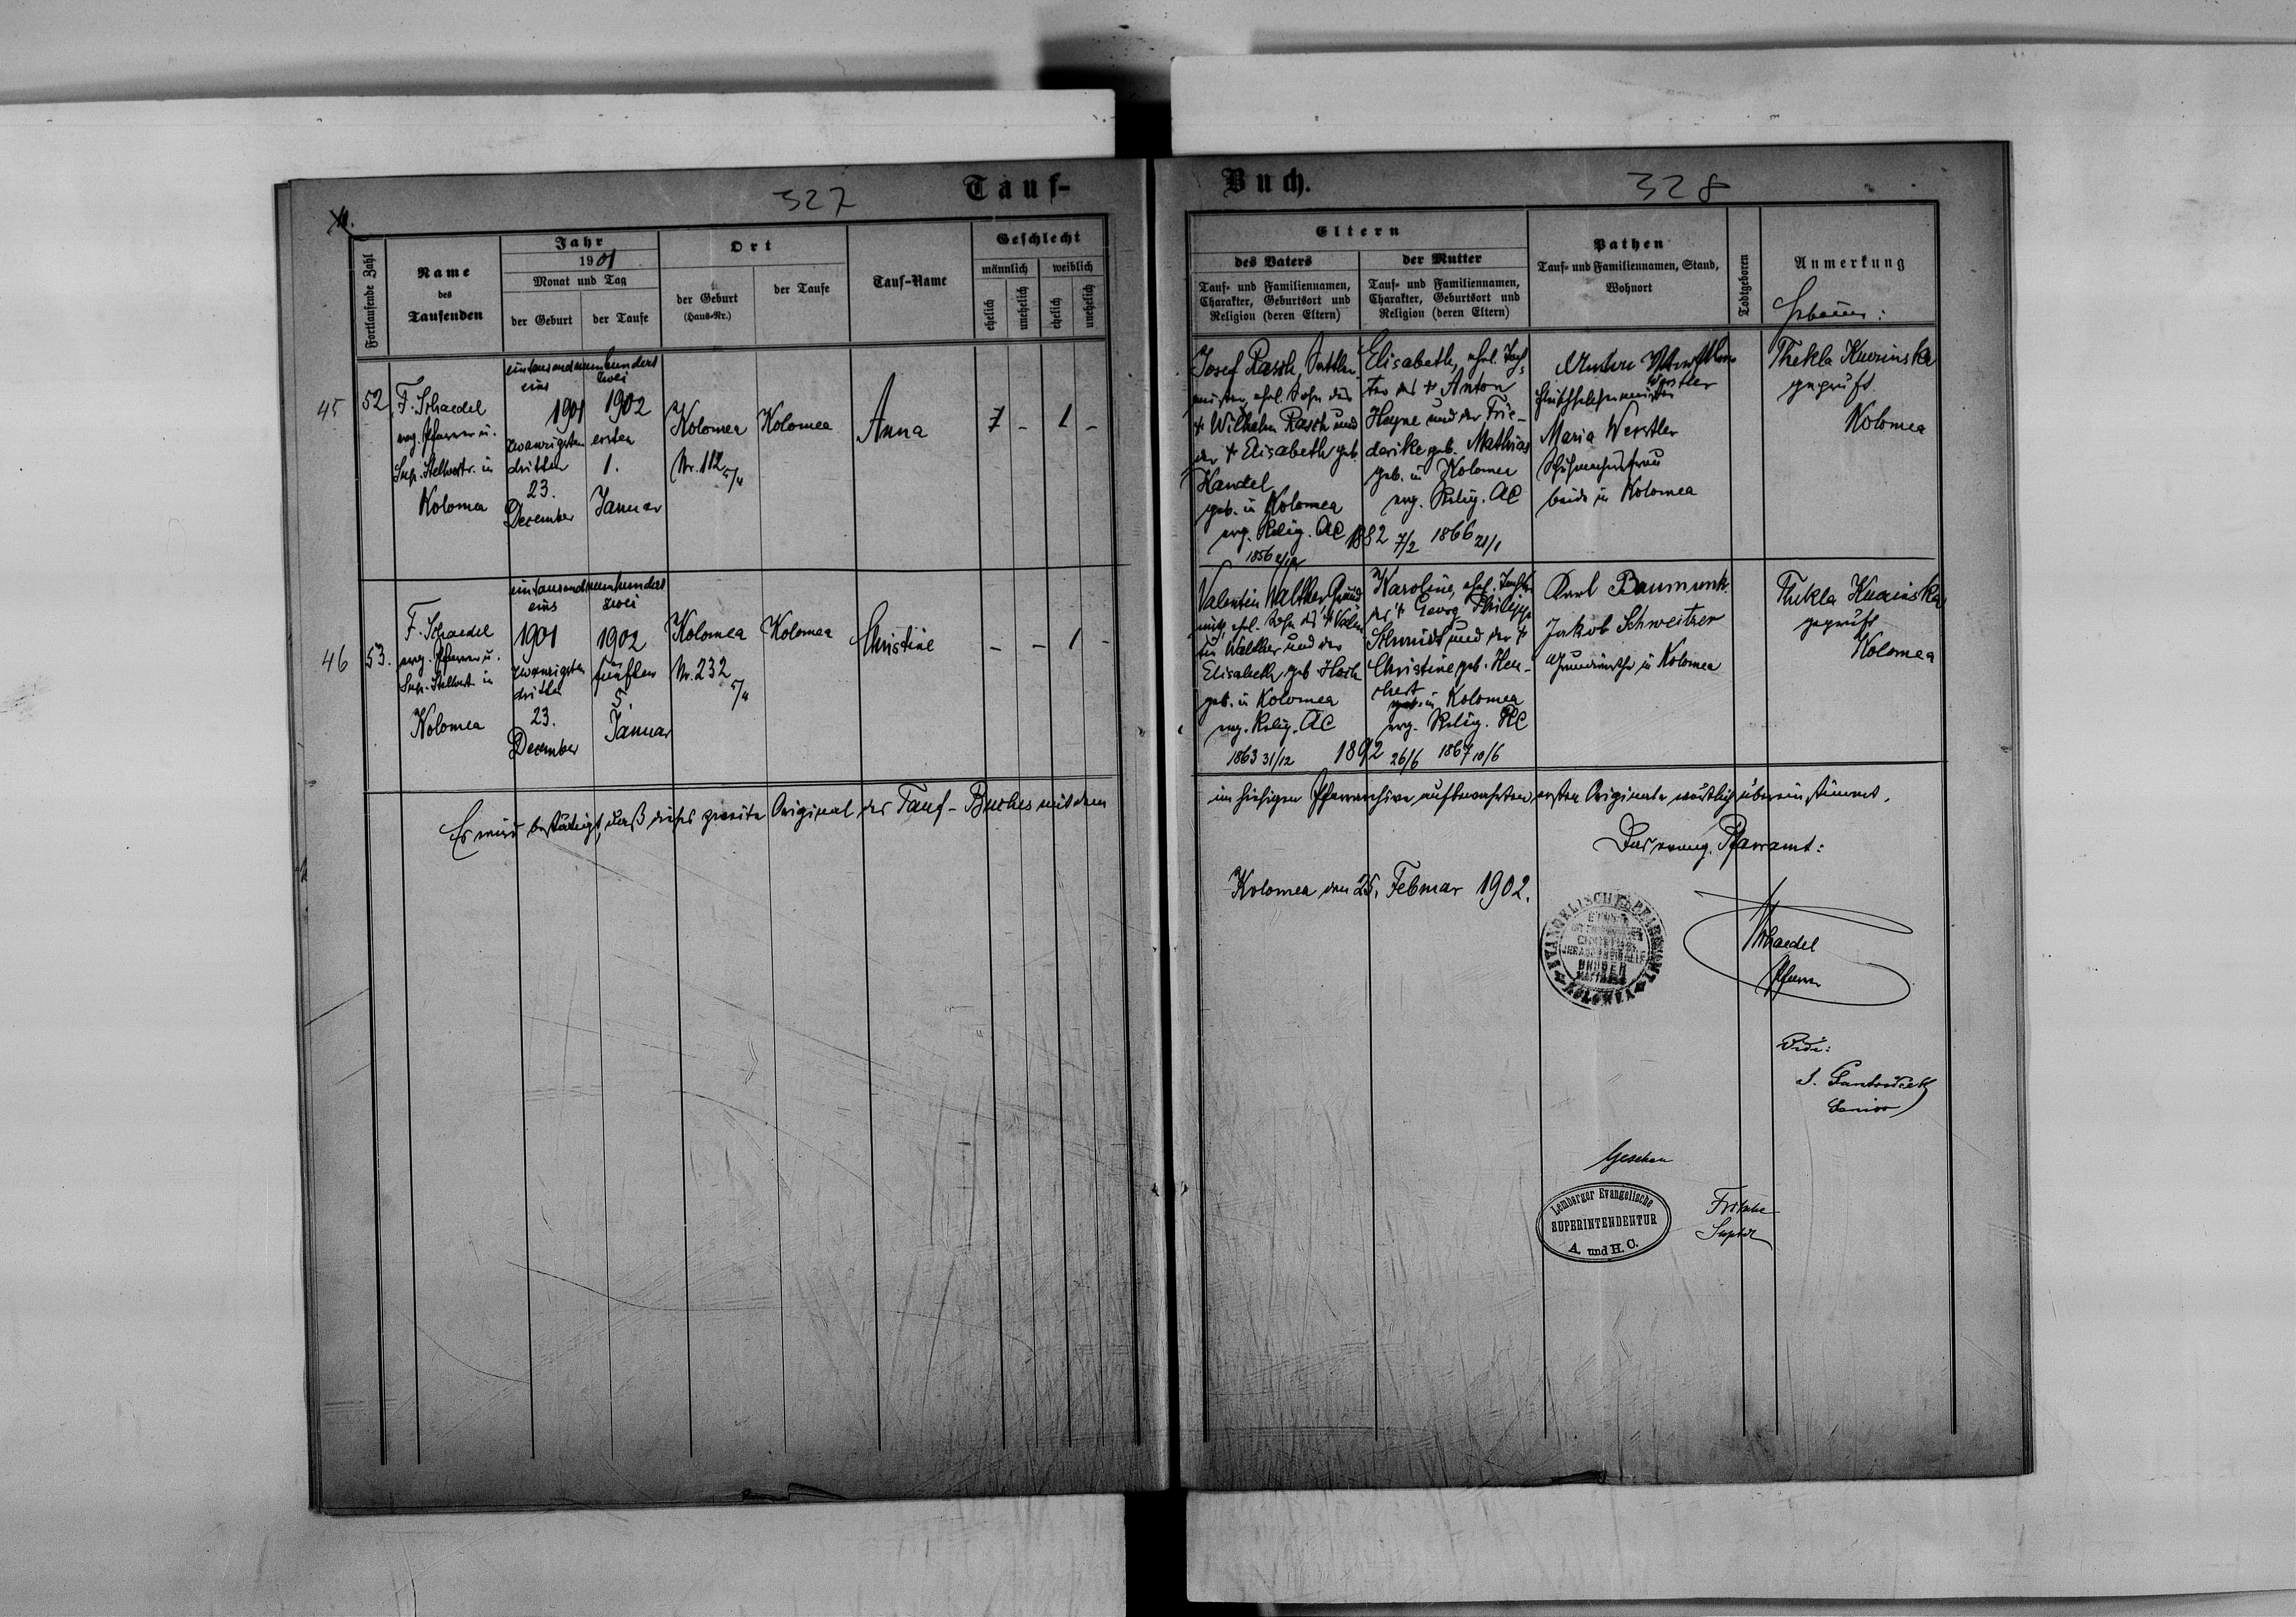 327
Tauf-
Fortlaufende Zahl
Name
des
Taufenden
Jahr
1901
Monat und Tag
der Geburt
der Taufe
Ort
der Geburt
(Haus-Nr.)
der Taufe
Tauf-Name
Geschlecht
männlich
weiblich
ehelich
unehelich
ehelich
unehelich
45
52
F. Schaedel
evg. Pfarrer u.
Sup. Stellvertr. in
Kolomea
eintausendneunhundert
eins
zwei
1901
zwanzigsten
dritten
23.
December
1902
ersten
1.
Januar
Kolomea
Nr. 112
5/4
Kolomea
Anna
-
1
-
46
53.
F. Schaedel
evg. Pfarrer u.
Sup. Stellvert. in
Kolomea
eintausendneunhundert
eins
zwei
1901
zwanzigsten
dritten
23.
December
1902
fünften
5.
Januar
Kolomea
Nr. 232
5/4
Kolomea
Christine
-
-
1
-
Es wird bestätigt, daß dieses zweite Original des Tauf-Buches mit dem
Buch.
328
Eltern
des Vaters
Tauf- und Familiennamen,
Charakter, Geburtsort und
Religion (deren Eltern)
der Mutter
Tauf- und Familiennamen,
Charakter, Geburtsort und
Religion (deren Eltern)
Pathen
Tauf- und Familiennamen, Stand,
Wohnort
Todtgeboren
Anmerkung
Hebamme:
Josef Rasch, Sattler
meister, ehel. Sohn des
† Wilhelm Rasch und
der † Elisabeth geb.
Handel
geb. in Kolomea
evg. Relig. AC
1856
1882 7/2
Elisabeth, ehel. Toch-
ter des † Anton
Heyne und der Frie-
derike geb. Mathias
geb. in Kolomea
evg. Relig. AC
1866 21/1
Werstler
Maria Werstler
beide in Kolomea
Thekla Kuczinska
geprüft
Kolomea
Valentin Walther Grund
wirth, ehel. Sohn des † Valen
tin Walther und der
Elisabeth geb. Hoch
geb. in Kolomea
evg. Relig. AC
1863 31/12
1892 26/6
Karoline, ehel. Tochter
des † Georg Philipp
Schmidt und der †
Christine geb. Heu-
chert
geb. in Kolomea
evg. Relig. RC
1867 10/6
Karl Baumunk
Jakob Schweitzer
Grundwirthe in Kolomea
Thekla Kuczinska
geprüft
Kolomea
im hiesigen Pfarrarchive aufbewahrten ersten Originale wörtlich übereinstimmt.
Das evang. Pfarramt:
Kolomea den 25. Februar 1902.
Schaedel
Pfarrer
KOLOMEA
Vidi:
Senior
Gesehen
Lemberger Evangelische
SUPERINTENDENTUR
A. und H. C.
Fritsche
Suptdt